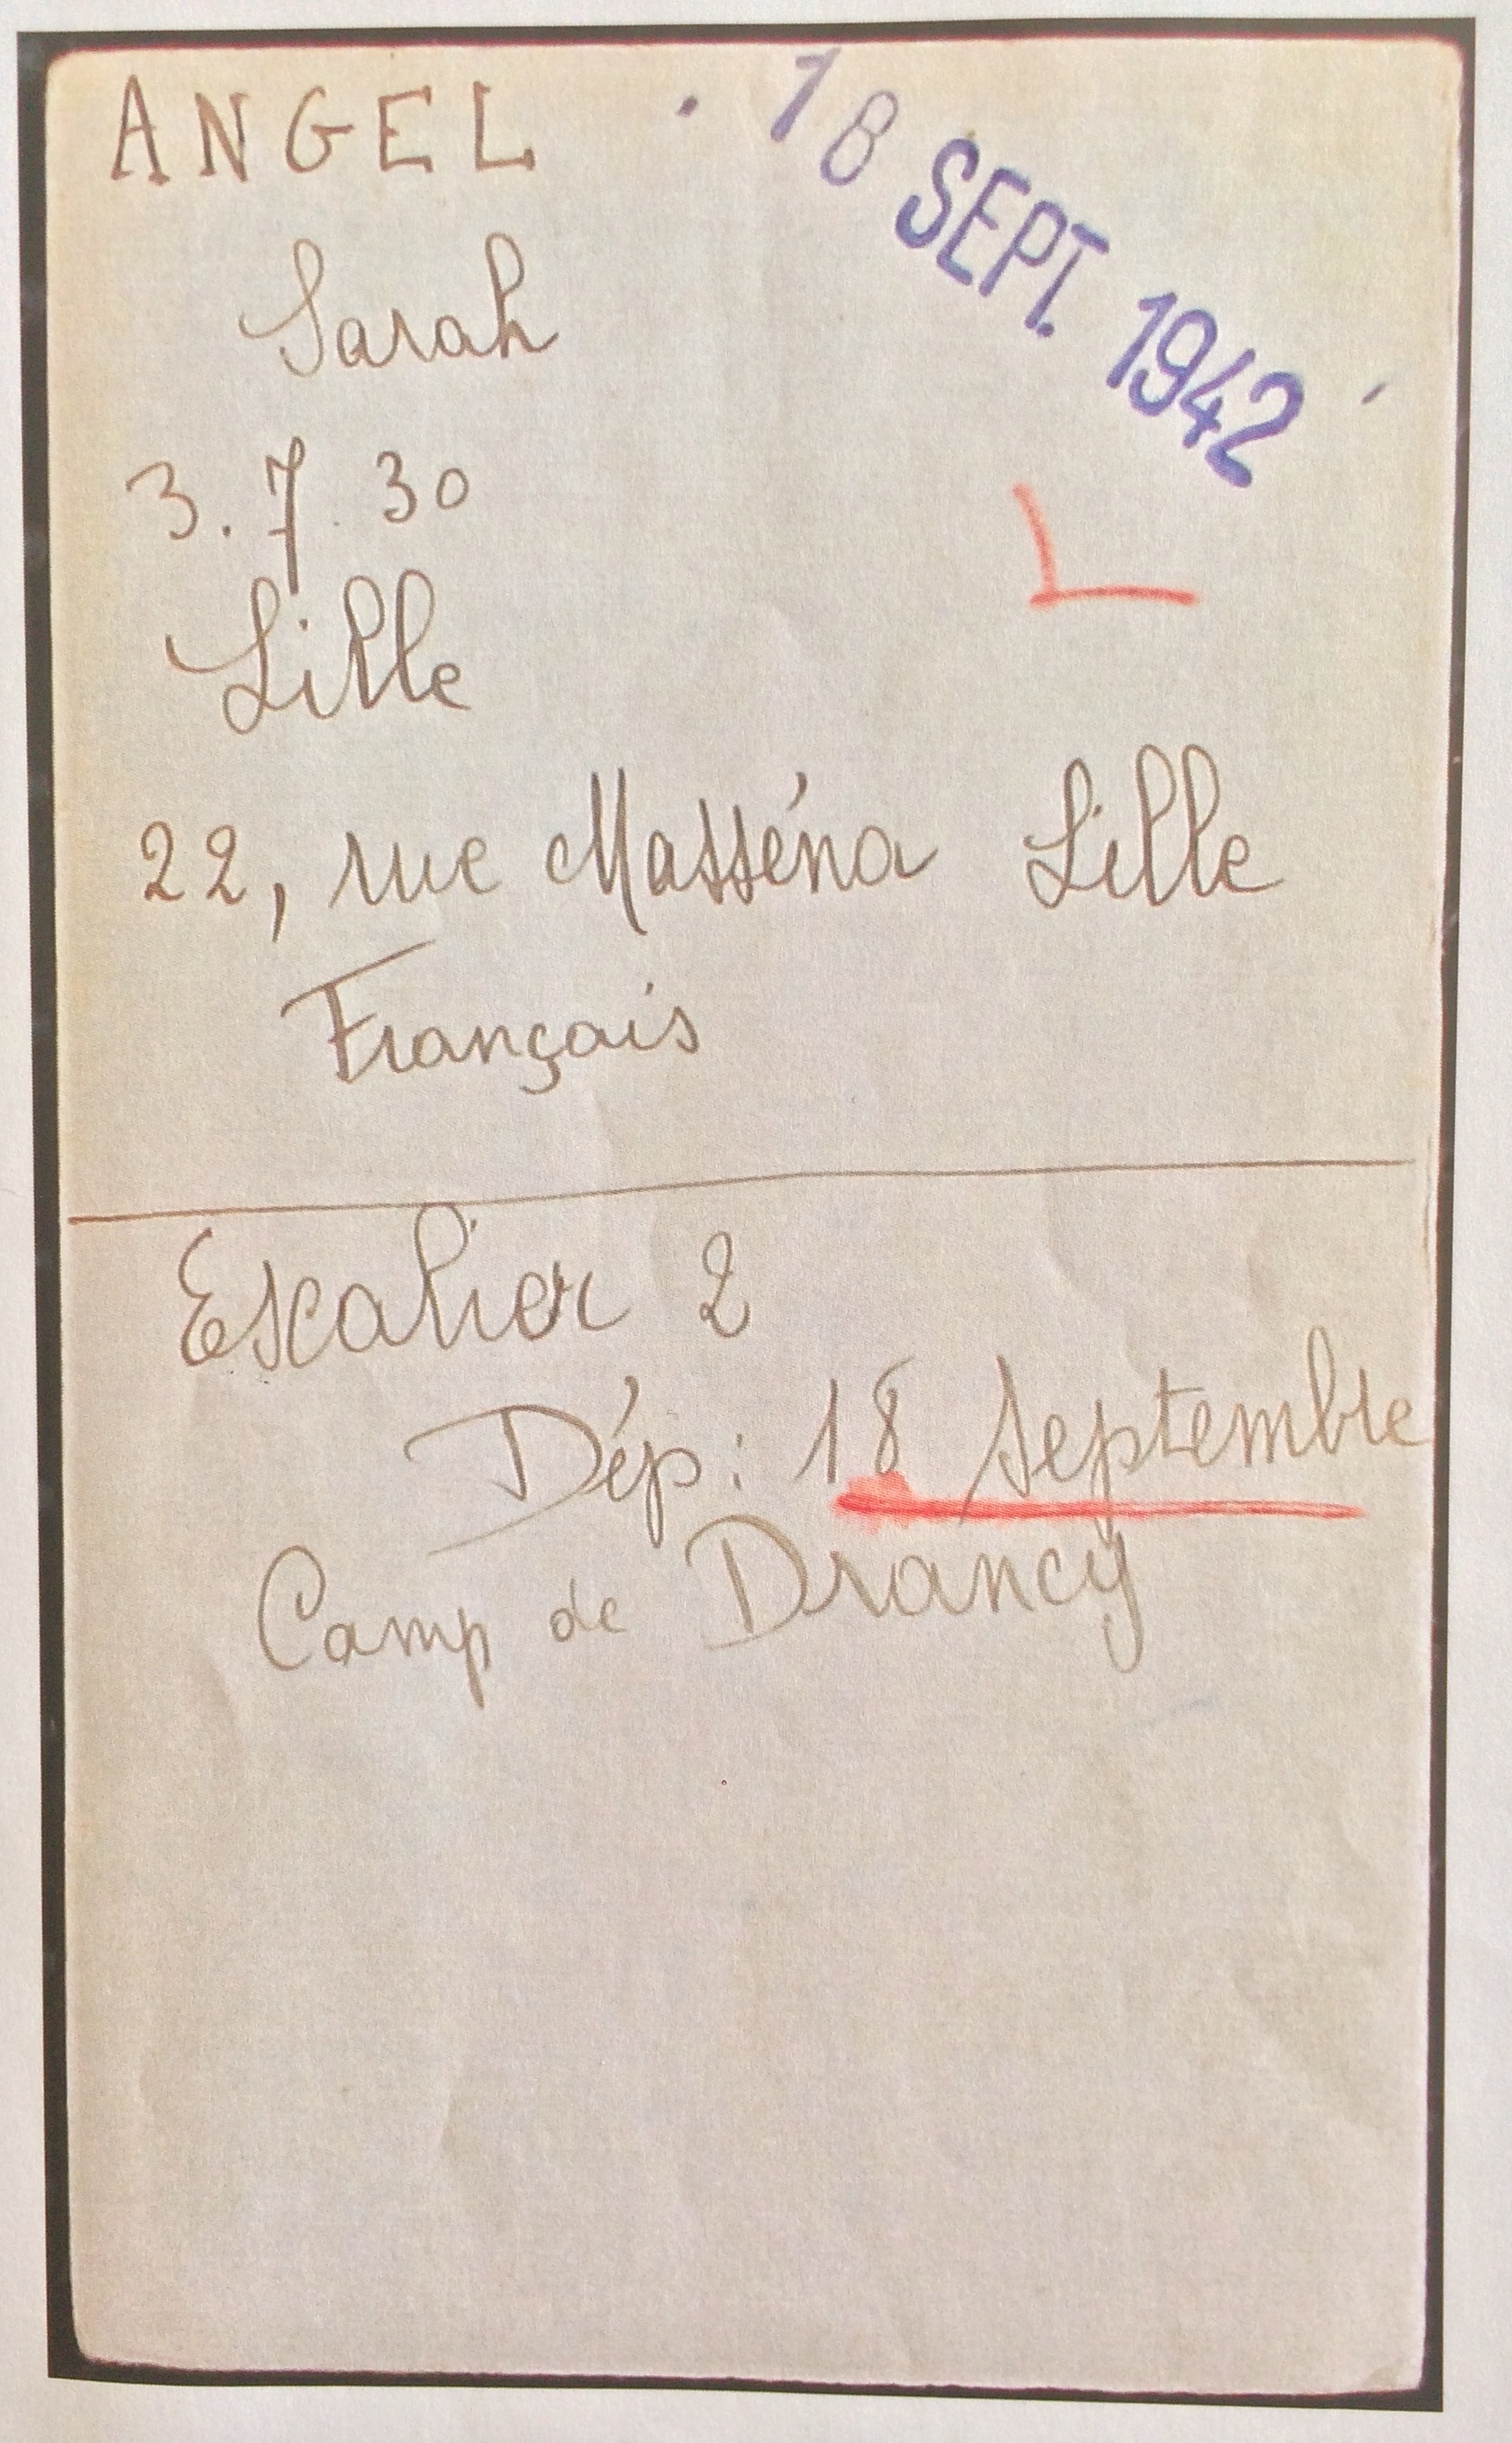 ANGEL
18 SEPT. 1942
Sarah
3.7.30
Lille
22, rue Masséna Lille
Français
Escalier 2
Dép: 18 septembre
Camp de Drancy